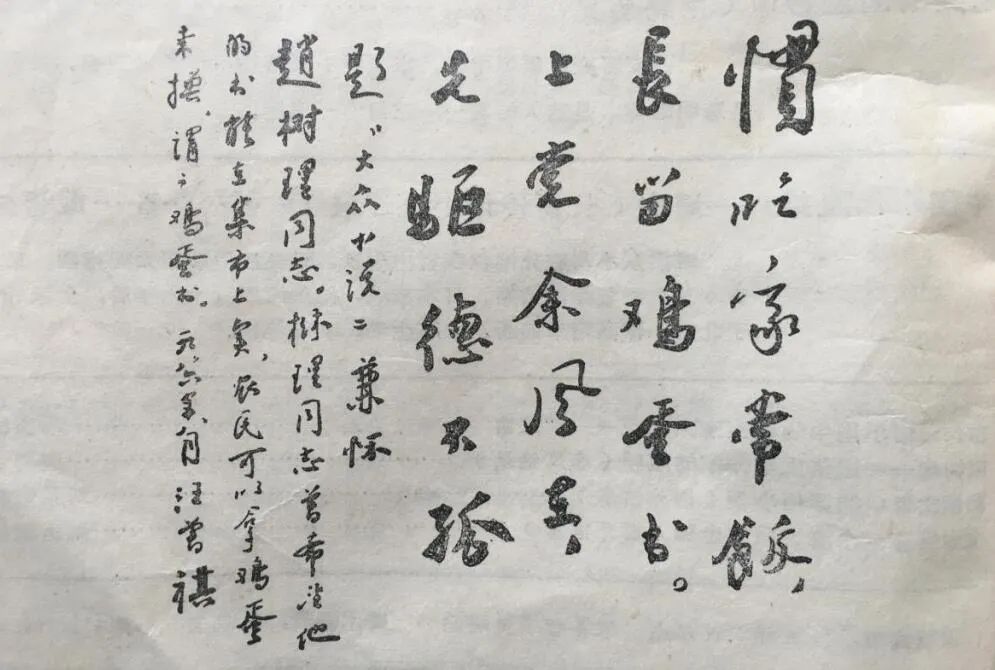 慣吃家常飯，
長留鸡蛋书。
上党余风在，
先驅德不孤
题“大众小说”兼怀
趙树理同志。树理同志曾希望他
的书能在集市上卖，农民可以拿鸡蛋
来换，谓之鸡蛋书。一九八六年 月 汪曾祺